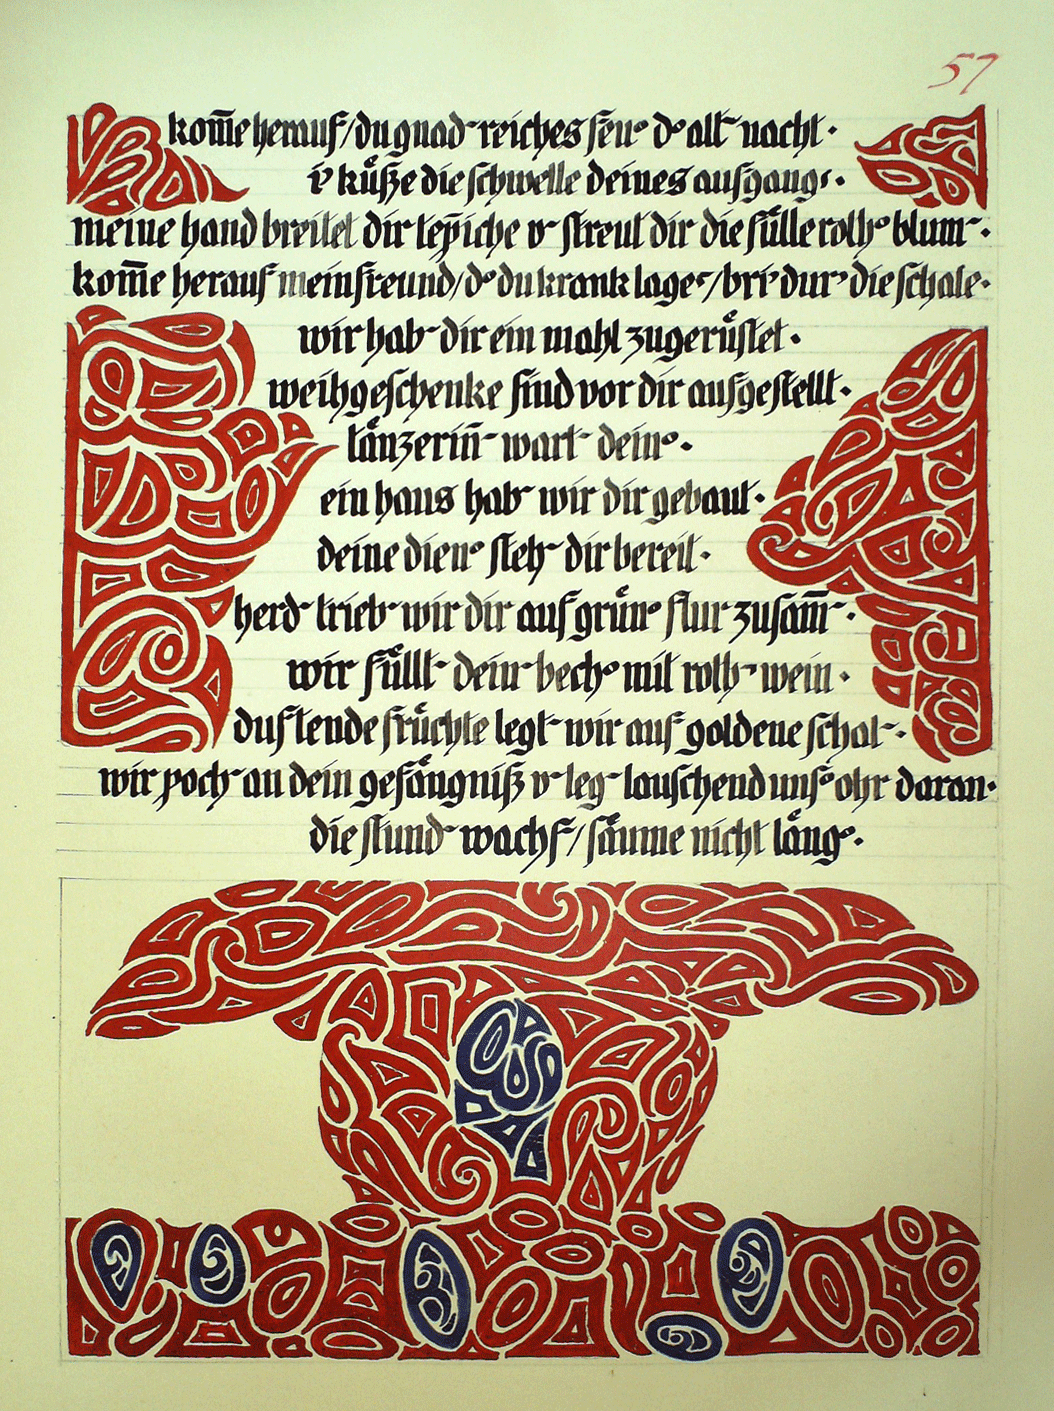 57
kom̄e herauf/du gnad‾reiches feu° d° alt‾ nacht·
i' kůͤße die schwelle deines aufgang's·
meine hand breitet dir tep̄iche v‾ streut dir die fülle roth° blum‾·
kom̄e herauf mein freund/d° du krank lage's/bri' dur' die schale·
wir hab‾ dir ein mahl zugerüstet·
weihgeschenke sind vor dir aufgestellt·
tänzerin̄‾ wart‾ dein°·
ein haus hab‾ wir dir gebaut·
deine dien° steh‾ dir bereit·
herd‾ trieb‾ wir dir auf grün° flur zusam̄‾·
wir füllt‾ dein‾ bech° mit roth‾ wein·
duftende früchte legt‾ wir auf goldene schal‾·
wir poch‾ an dein gefängniß v‾ leg‾ lauschend uns° ohr daran·
die stund‾ wachs/säume nicht läng°·